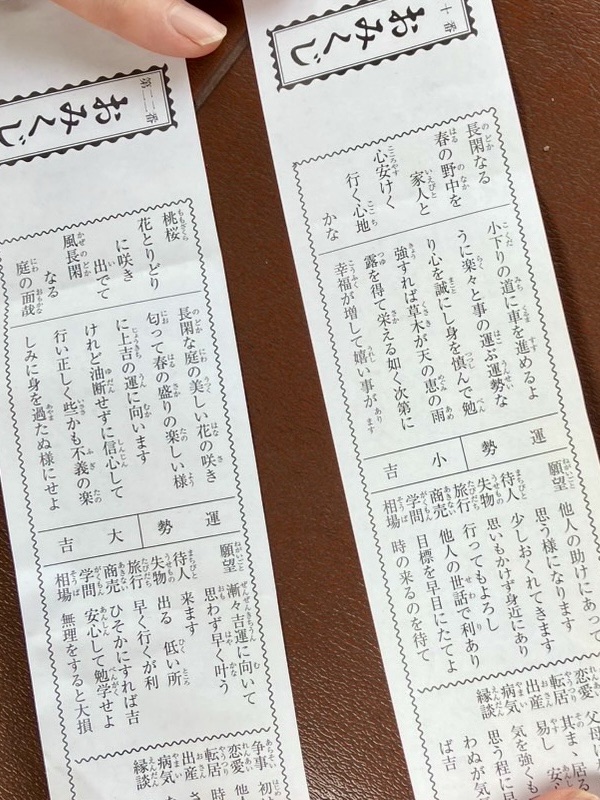 十番
おみくじ
長閑なる
春の野中を
家人と
心安けく
行く心地
かな
小下りの道に車を進めるよ
うに楽々と事の運ぶ運勢な
り心を誠にし身を慎んで勉
強すれば草木が天の恵の雨
露を得て栄える如く次第に
幸福が増して嬉い事が有ます
運勢
小吉
願望 他人の助けにあって
思う様になります
待人 少しおくれてきます
失物 思いもかけず身近にあり
旅行 行ってもよろし
商売 他人の世話で利あり
学問 目標を早目にたてよ
相場 時の来るのを待て
恋愛 父母に
転居 其ま、居る
出産 易し 安
病気 気を強くも
縁談 思う程に
わぬが気
ば吉
第二二番
おみくじ
桃桜
花とりどり
に咲き
出でて
風長閑
なる
庭の面哉
長閑な庭の美しい花の咲き
匂って春の盛りの楽しい様
に上吉の運に向います
けれど油断せずに信心して
行い正しく些かも不義の楽
しみに身を過たぬ様にせよ
運勢
大吉
願望 漸々吉運に向いて
思わず早く叶う
待人 来ます
失物 出る 低い所
旅行 早く行くが利
商売 ひそかにすれば吉
学問 安心して勉学せよ
相場 無理をすると大損
争事 初
恋愛 他
転居
出産
病気
縁談